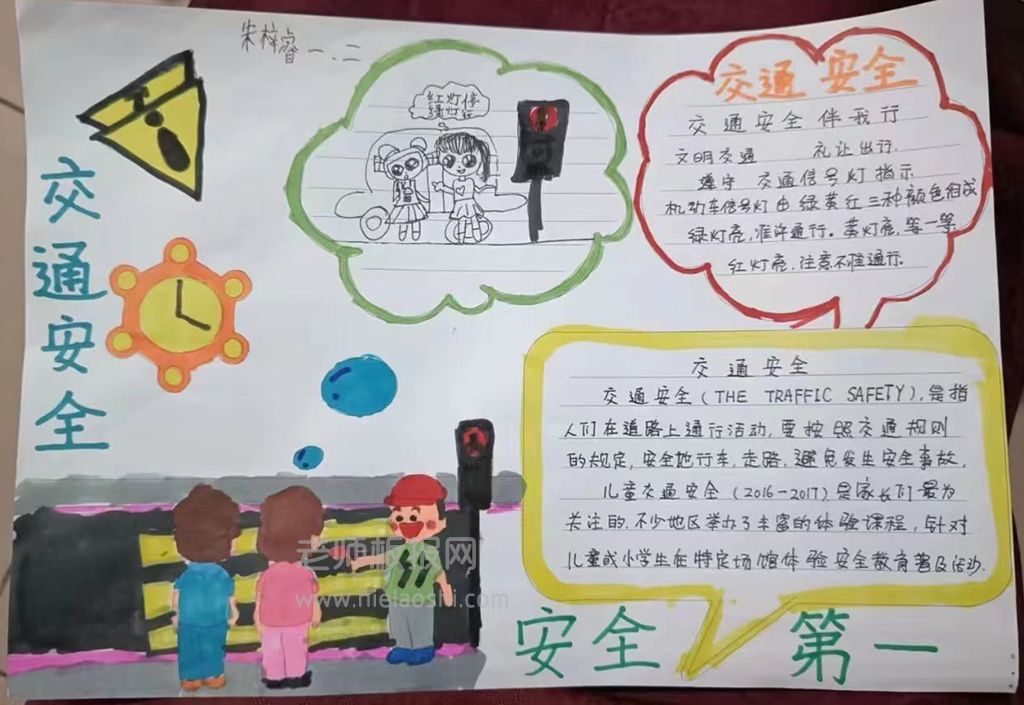 朱梓睿 一.二
交通安全
红灯停
绿灯行
交通安全
交通安全伴我行
文明交通 礼让出行.
遵守 交通信号灯指示
机动车信号灯由绿黄红三种颜色组成
绿灯亮,准许通行。黄灯亮,等一等
红灯亮,注意不准通行.
交通安全
交通安全(THE TRAFFIC SAFETY),是指
人们在道路上通行活动,要按照交通规则
的规定,安全地行车,走路,避免发生安全事故.
儿童交通安全(2016-2017)是家长们最为
关注的.不少地区举办了丰富的体验课程,针对
儿童或小学生在特定场馆体验安全教育普及活动.
安全 第一
老师板报网
www.nielaoshi.com